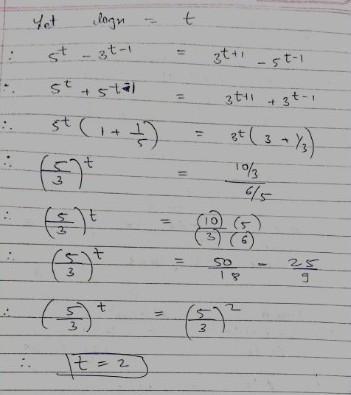 Let logn = t
∴ 5^t - 3^(t-1) = 3^(t+1) - 5^(t-1)
∴ 5^t + 5^(t-1) = 3^(t+1) + 3^(t-1)
∴ 5^t (1 + 1/5) = 3^t (3 + 1/3)
∴ (5/3)^t = (10/3)/(6/5)
∴ (5/3)^t = (10)/(3) (5)/(6)
∴ (5/3)^t = 50/18 = 25/9
∴ (5/3)^t = (5/3)^2
∴ t = 2